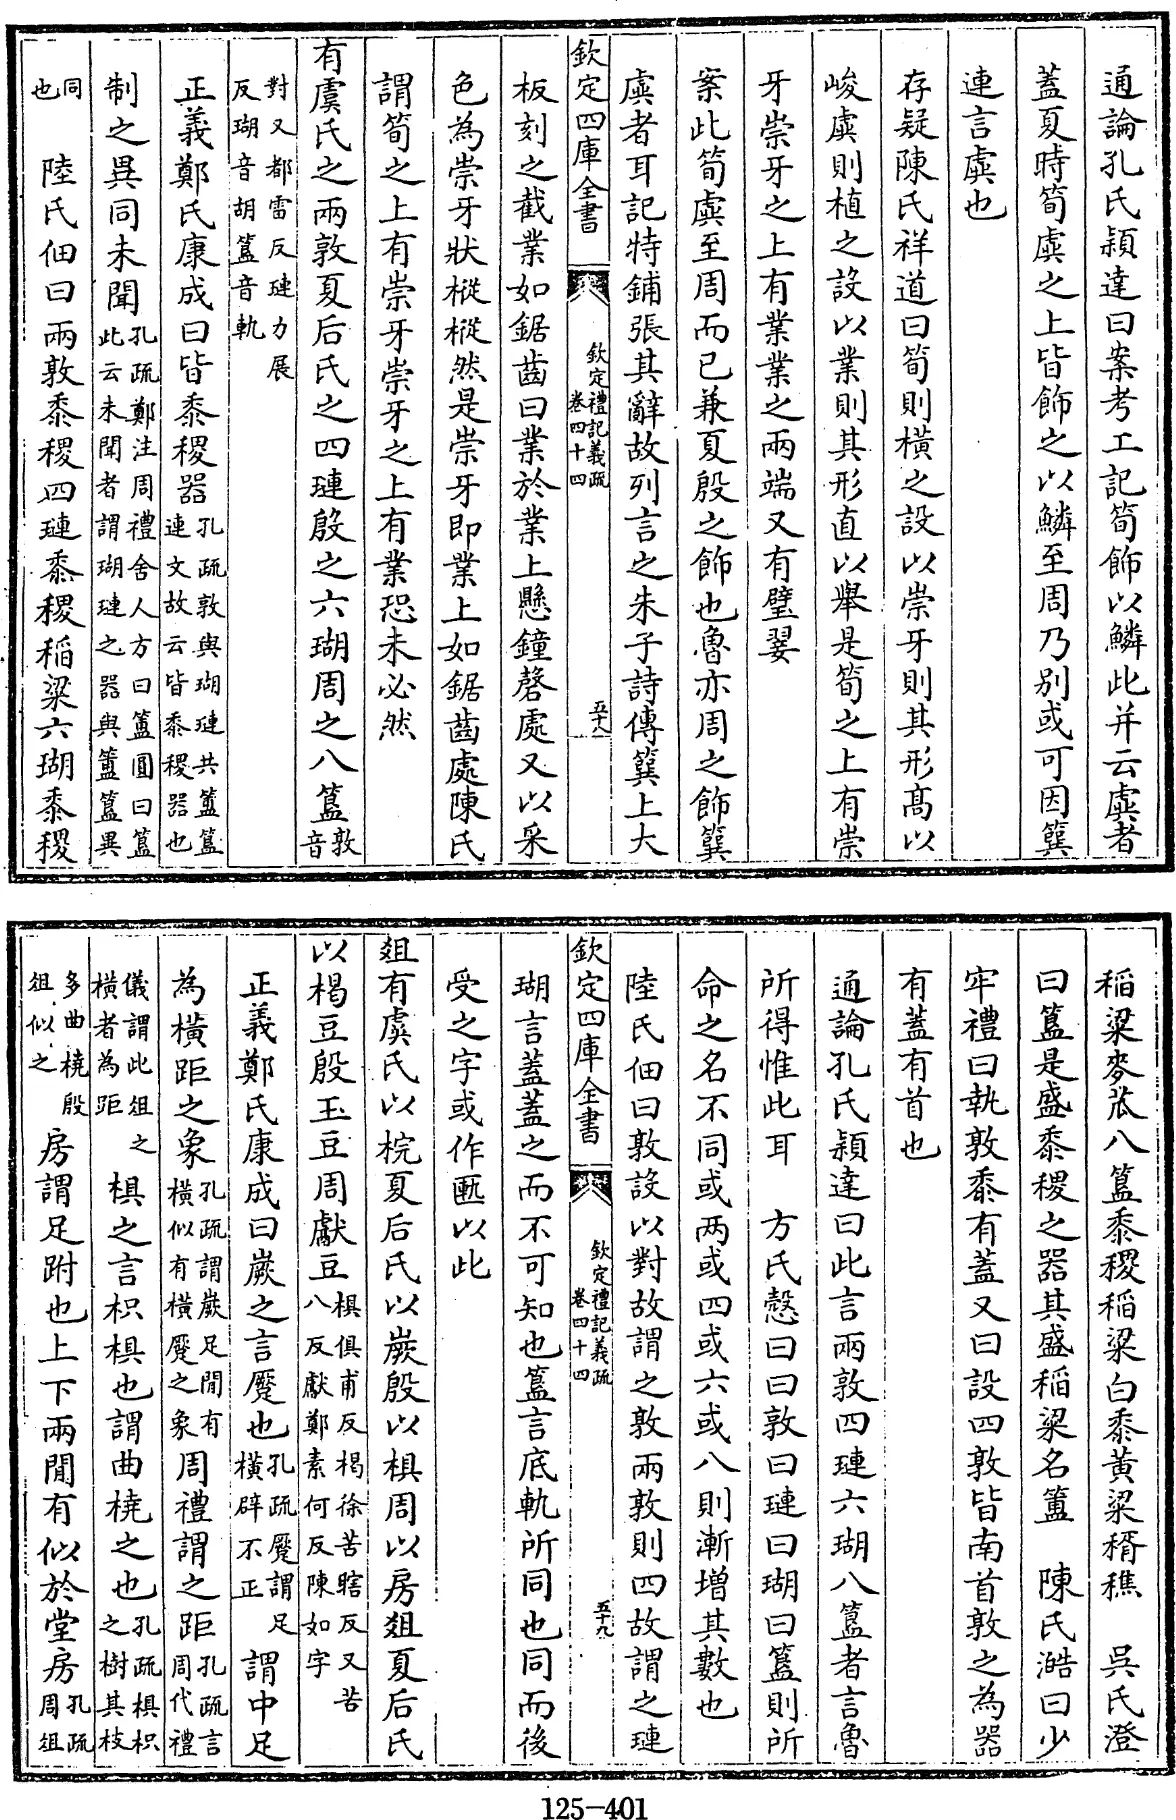 通論孔氏頴達曰案考工記筍飾以鱗此并云虡者
蓋夏時筍虡之上皆飾之以鱗至周乃别或可因簨
連言虡也
存疑陳氏祥道曰筍則橫之設以崇牙則其形髙以
峻虡則植之設以業則其形直以舉是筍之上有崇
牙崇牙之上有業業之兩端又有璧翣
案此筍虡至周而已兼夏殷之飾也魯亦周之飾簨
虡者耳記特鋪張其辭故列言之朱子詩傳簨上大
欽定四庫全書
欽定禮記義疏
卷四十四
五十八
板刻之截業如鋸齒曰業於業上懸鐘磬處又以采
色為崇牙狀樅樅然是崇牙即業上如鋸齒處陳氏
謂筍之上有崇牙崇牙之上有業恐未必然
有虞氏之兩敦夏后氏之四璉殷之六瑚周之八簋敦音
對又都雷反璉力展
反瑚音胡簋音軌
正義鄭氏康成曰皆黍稷器孔疏敦與瑚璉共簠簋
連文故云皆黍稷器也
制之異同未聞孔疏鄭注周禮舍人方曰簠圓曰簋
此云未聞者謂瑚璉之器與簠簋異
同
也
陸氏佃曰兩敦黍稷四璉黍稷稻粱六瑚黍稷
稻粱麥苽八簋黍稷稻粱白黍黄粱稰穛　吳氏澄
曰簋是盛黍稷之器其盛稻粱名簠　陳氏澔曰少
牢禮曰執敦黍有蓋又曰設四敦皆南首敦之為器
有蓋有首也
通論孔氏頴達曰此言兩敦四璉六瑚八簋者言魯
所得惟此耳　方氏慤曰曰敦曰璉曰瑚曰簋則所
命之名不同或两或四或六或八則漸增其數也
陸氏佃曰敦設以對故謂之敦兩敦則四故謂之璉
欽定四庫全書
欽定禮記義疏
卷四十四
五十九
瑚言蓋蓋之而不可知也簋言底軌所同也同而後
受之字或作匭以此
俎有虞氏以梡夏后氏以嶡殷以椇周以房俎夏后氏
以楬豆殷玉豆周獻豆椇俱甫反楬徐苦瞎反又苦
八反獻鄭素何反陳如字
正義鄭氏康成曰嶡之言蹷也孔疏蹷謂足
橫辟不正
謂中足
為橫距之象孔疏謂嶡足閒有
橫似有橫蹷之象
周禮謂之距孔疏言
周代禮
儀謂此俎之
橫者為距
椇之言枳椇也謂曲橈之也孔疏椇枳
之樹其枝
多曲橈殷
俎似之
房謂足跗也上下兩閒有似於堂房孔疏
周俎
125-401